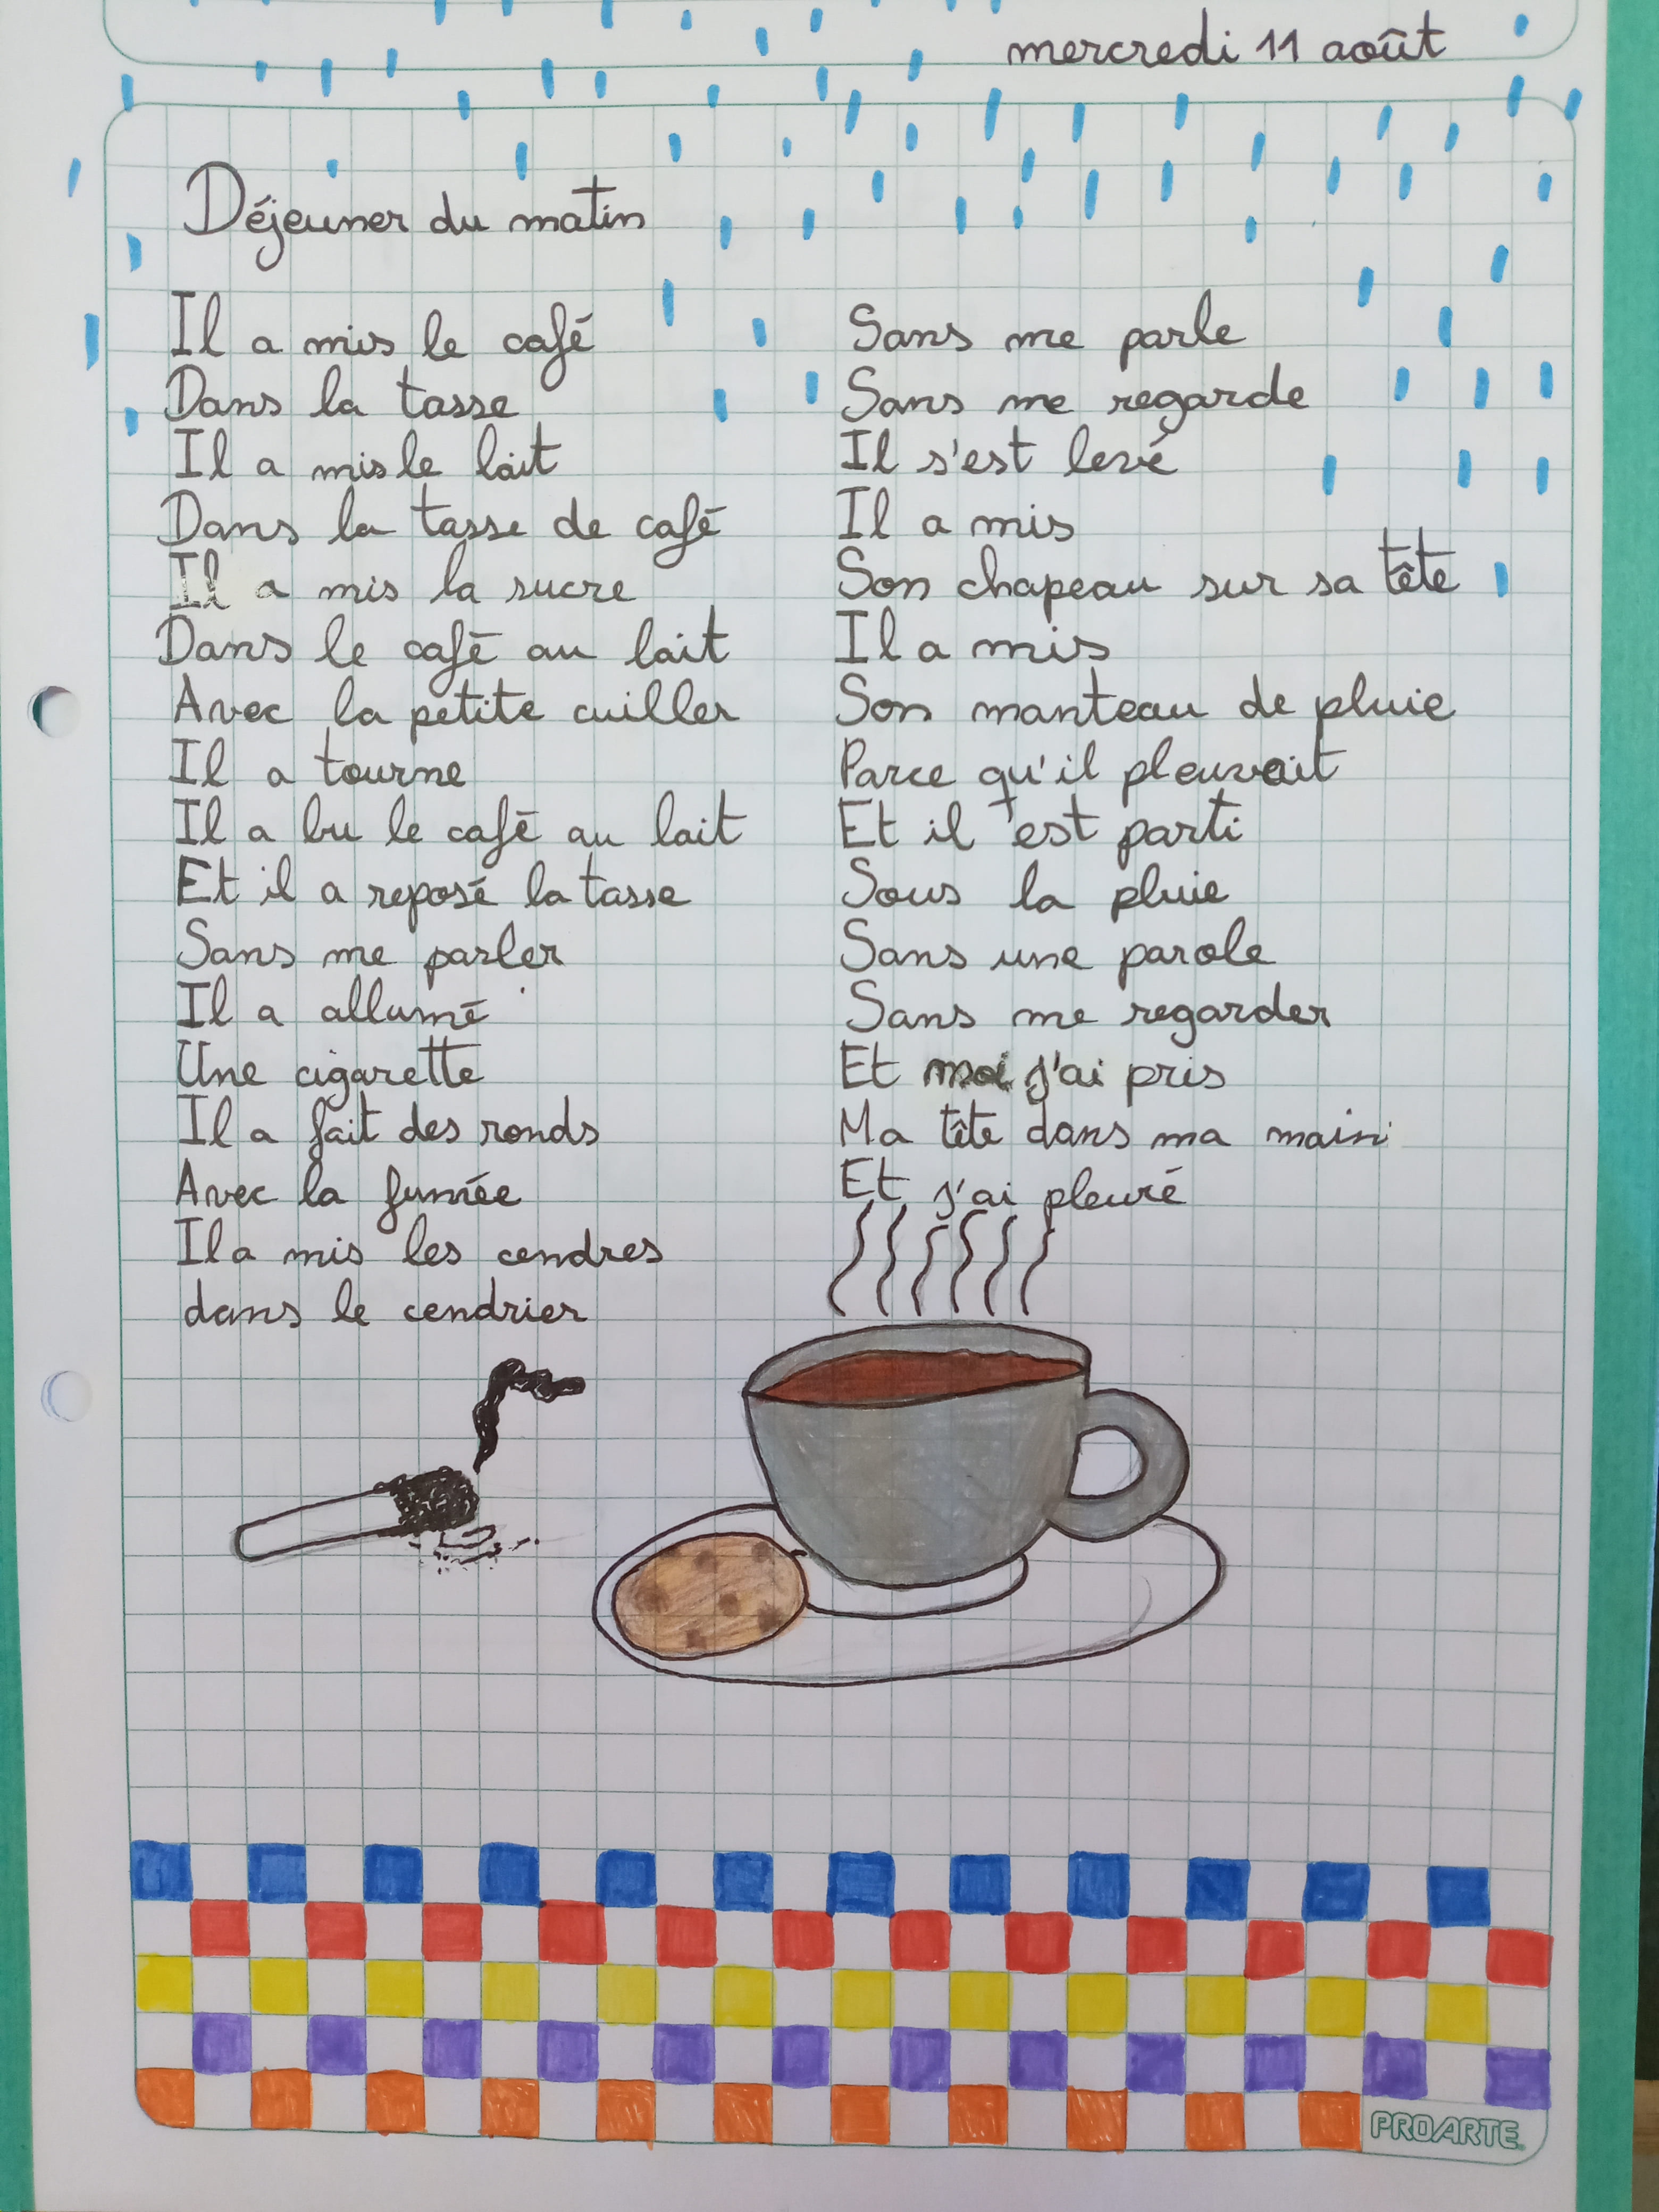 mercredi 11 août
Déjeuner du matin
Il a mis le café
Dans la tasse
Il a mis le lait
Dans la tasse de café
Il a mis la sucre
Dans le café au lait
Avec la petite cuiller
Il a tourne
Il a bu le café au lait
Et il a reposé la tasse
Sans me parler
Il a allumé
Une cigarette
Il a fait des ronds
Avec la fumée
Il a mis les cendres
dans le cendrier
Sans me parle
Sans me regarde
Il s'est levé
Il a mis
Son chapeau sur sa tête
Il a mis
Son manteau de pluie
Parce qu'il pleuvait
Et il est parti
Sous la pluie
Sans une parole
Sans me regarder
Et moi j'ai pris
Ma tête dans ma main
Et j'ai pleuré
PROARTE